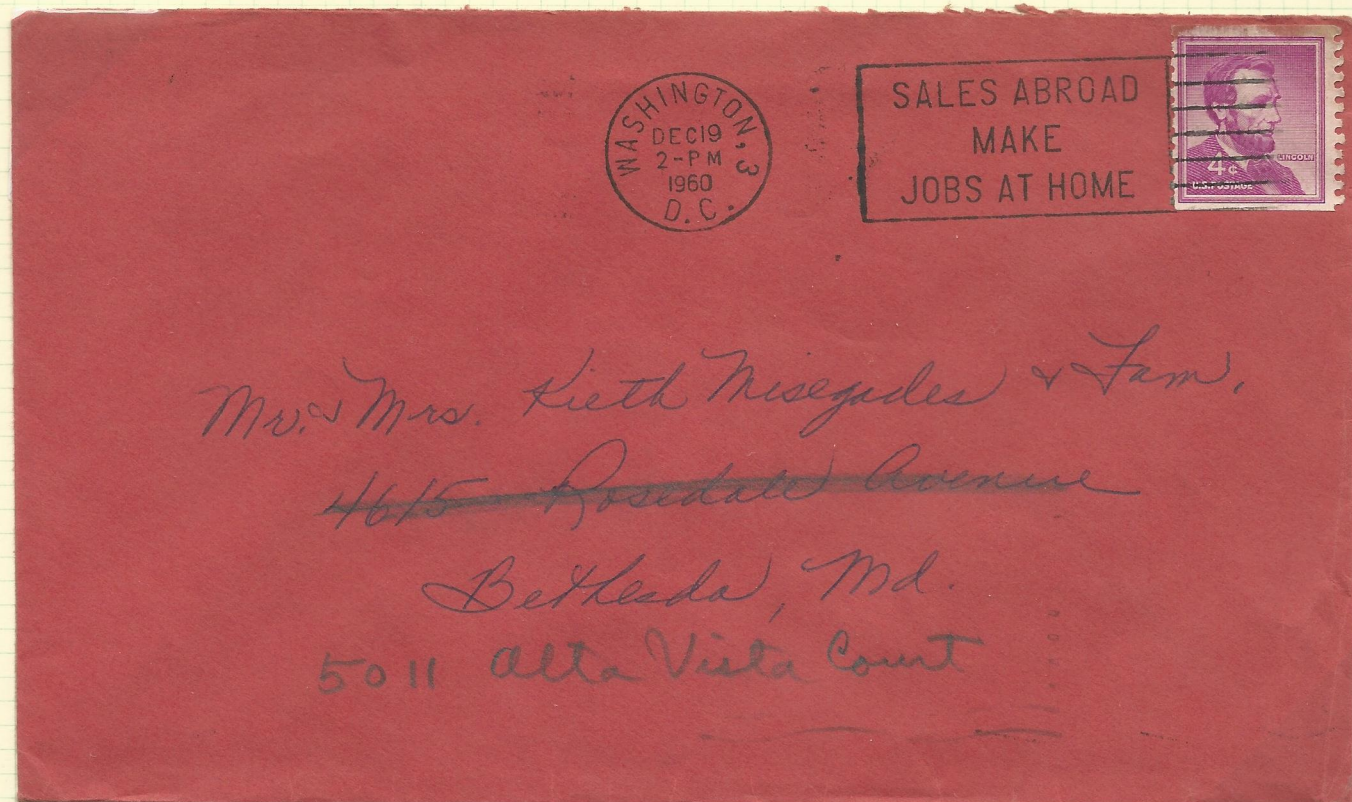 WASHINGTON, 3
DEC 19
2-PM
1960
D.C.
SALES ABROAD
MAKE
JOBS AT HOME
LINCOLN
4¢
U.S. POSTAGE
Mr. & Mrs. Kieth Misegades & Fam.
4615 Rosedale Avenue
Bethesda, Md.
5011 Alta Vista Court